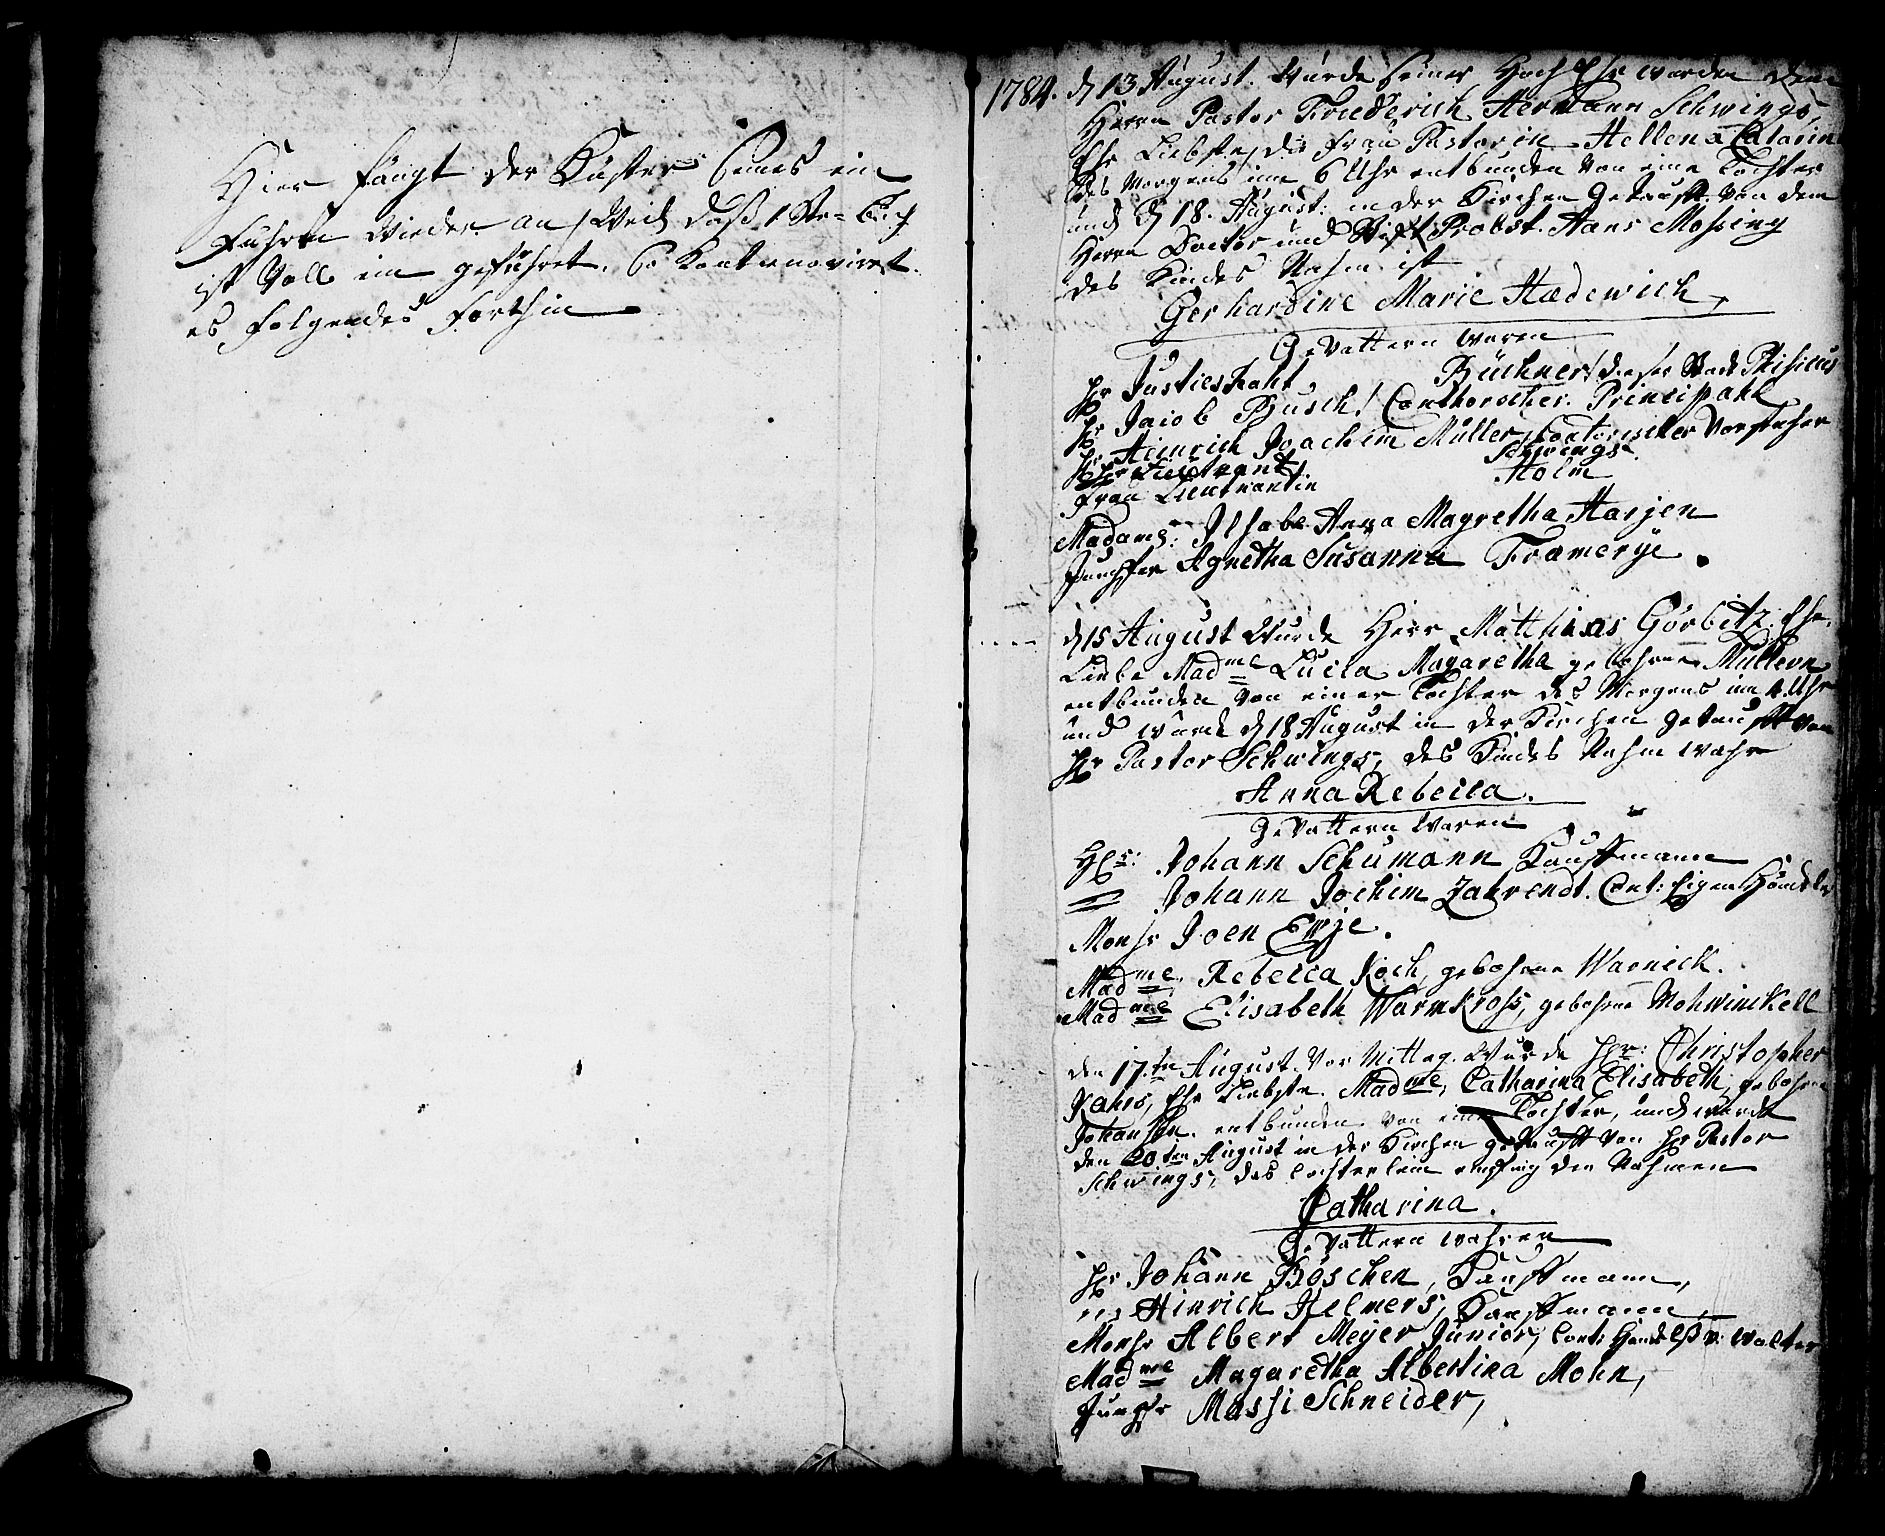 Hier fängt der Küster Cenes ein
Fuhren wieder an, Weil daß 1ste Buch
ist Voll ein geführet. So Kontenoviret
es Folgendes Forthin
1784. d 13 August. Wurde Seiner Hoch Ehr würden dem
Herrn Pastor Friederich Hermann Schwings,
Ehe Liebste, die Frau Pastorin Hellena Catarin
des Morgens um 6 Uhr entbunden Von eine Tochter
und d 18. August: in der Kirchen Getauft. Von dem
Herrn Doctor und Probst. Hans Mossing
des Kindes Nahm ist
Gerhardine Marie Hedewich,
GeVattern waren
Hr Justies Raht Büchner, dieser Stadt Phisicus
Hr Jaiob Busch, Conthorscher. Principahl
Hr Heinrich Joachim Müller, Contorischer Vorsteher
Hr Lieutnant Schwings
Frau Lieutnantin Holm
Madame: Ilsabe Anna Magretha Harjen
Jungfer Agnetha Susanna Framerye.
d 15 August Wurde Herr Matthias Görbitz. Ehe.
Liebe Madme Lucia Magaretha gebohrne Müllern
entbunden Von einer Tochter des Morgens um 4 Uhr
und wurde d 18 August in der Kirchen getauft von
Hr Pastor Schwings, des Kindes Nahm wahr
Anna Rebecca.
GeVattern Waren
Hrs: Johann Schumann Kauffmann
= Johann Jochim Zahrendt. Cont: Eigen Händeler
Monsr Joen Erje.
Madme Rebecca Koch, gebohrne Warnick.
Madme Elisabeth Warmkross, gebohrne Mohwinckell
den 17.ten August. Vor Mittag. Wurde Hr: Christopher
Kahrs, Ehe Liebste. Madme, Catharina Elisabeth, gebohrne
Johanssen. entbunden von eine Tochter, und wurde
den 20ten August in der Kirchen getauft Von Hr Pastor
Schwings, das Tochterlein empfing den Nahmen
Catharina.
GeVattern wahren
Hr Johann Böschen, Kauffmann,
Hinrich Helmers, Kauffmann,
Monsr Albert Meyer Junior, Cont: Walter
Madme Magaretha Albertina Mohn,
Jungfr Massi Schneider,